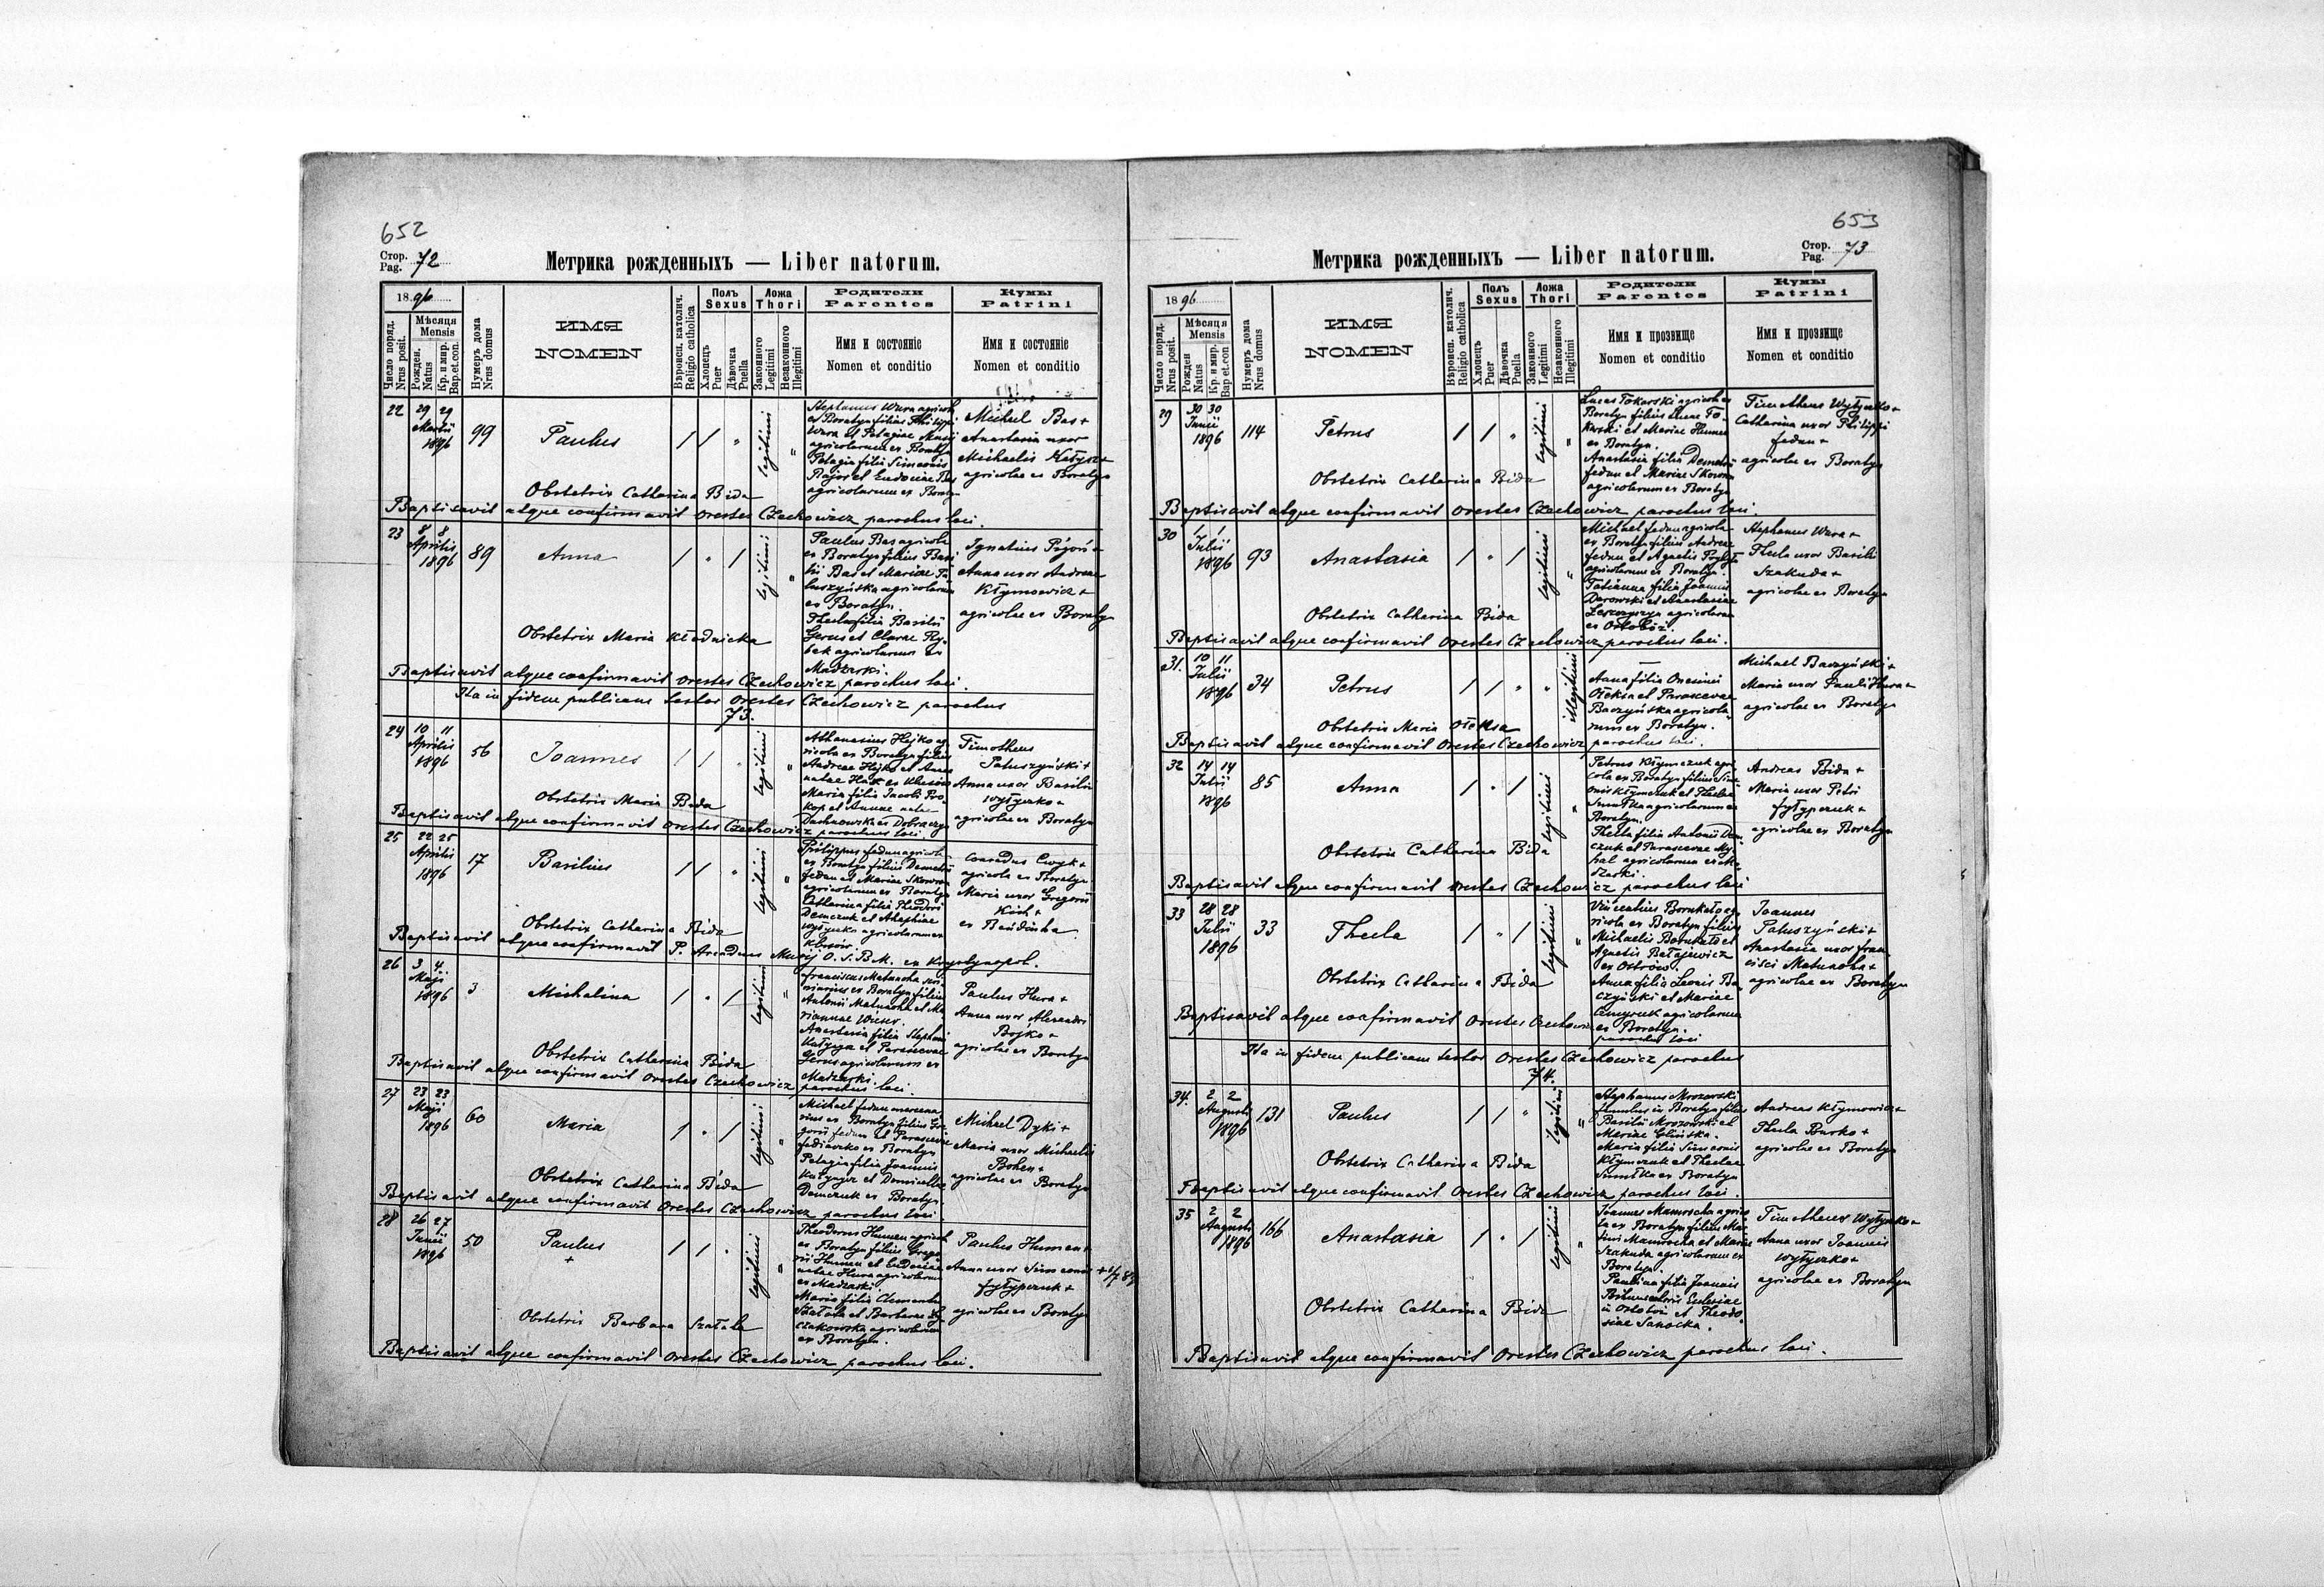 652
Стор. Pag. 72
Метрика рожденныхъ — Liber natorum.
1896
Число поряд. Nrus posit.
Мѣсяця Mensis
Рожден. Natus
Кр. и мир. Bap. et. con.
Нумеръ дома Nrus domus
ИМЯ
NOMEN
Вѣроисп. католич. Religio catholica
Полъ Sexus
Хлопецъ Puer
Дѣвочка Puella
Ложа Thori
Законного Legitimi
Незаконного Illegitimi
Родители Parentes
Имя и состоянiе
Nomen et conditio
Кумы Patrini
Имя и состоянiе
Nomen et conditio
22 29 29 Martii 1896 99 Paulus / / „ legitimi „
Stephanus Wura agricola
ex Boratyn filius Philippi
Wura et Pelagiae
agricolarum ex Boratyn
Pelagia filia Simeonis
et Eudociae Bas
agricolarum ex Boratyn
Michael Bas +
Anastasia uxor
Michaelis
agricolae ex Boratyn
Obstetrix Catharina Bida
Baptisavit atque confirmavit Orestes Czechowicz parochus loci.
23 8 8 Aprilis 1896 89 Anna / „ / legitimi „
Paulus Bas agricola
ex Boratyn filius Basi
lii Bas et Mariae Pa
tuszyńska agricolarum
ex Boratyn.
Thecla filia Basilii
Gerus et Clarae Ry
bak agricolarum ex
Madzarki.
Ignatius +
Anna uxor Andreae
Kłymowicz +
agricolae ex Boratyn
Obstetrix Maria Kłodnicka
Baptisavit atque confirmavit Orestes Czechowicz parochus loci.
Ita in fidem publicam testor Orestes Czechowicz parochus
73.
24 10 11 Aprilis 1896 56 Joannes / / „ legitimi „
Athanasius Hejko ag
ricola ex Boratyn filius
Andreae Hejko et Annae
natae
Maria filia Jacobi Pro
kop et Annae natae
Timotheus
Patuszyński +
Anna uxor Basilii
Wytyczko +
agricolae ex Boratyn
Obstetrix Maria Bida
Baptisavit atque confirmavit Orestes Czechowicz parochus loci
25 22 25 Aprilis 1896 17 Basilius / / „ legitimi „
Philippus Fedun agricola
ex Boratyn filius Demetrii
Fedun et Mariae Skowron
agricolarum ex Boratyn
Catharina filia Theodori
Demczuk et
agricolarum ex
Conradus Cwyk +
agricola ex Boratyn
Maria uxor Gregorii
ex
Obstetrix Catharina Bida
Baptisavit atque confirmavit P. Arcadius O. S. B. M. ex Krystynopol.
26 3 4 Maji 1896 3 Michalina / „ / legitimi „
Franciscus Matuacha
ex Boratyn filius
Antonii Matuacha et Ma
riannae
Anastasia filia Stephani
et Parascevae
Gerus agricolarum ex
Madzarki.
Paulus Hura +
Anna uxor Alexandri
Bojko +
agricolae ex Boratyn
Obstetrix Catharina Bida
Baptisavit atque confirmavit Orestes Czechowicz parochus loci.
27 23 23 Maji 1896 60 Maria / „ / legitimi „
Michael Fedun mercena
rius ex Boratyn filius Gre
gorii Fedun et Parascevae
ex Boratyn
Pelagia filia Joannis
et Domicellae
Demczuk ex Boratyn.
Michael Dyki +
Maria uxor Michaelis
Bohen +
agricolae ex Boratyn
Obstetrix Catharina Bida
Baptisavit atque confirmavit Orestes Czechowicz parochus loci.
28 26 27 Junii 1896 50 Paulus + / / „ legitimi „
Theodorus Humen agricola
ex Boratyn filius Grego
rii Humen et Eudociae
natae Hura agricolarum
ex Madzarki.
Maria filia Clementis
Szatała et Barbarae
agricolarum
ex Boratyn.
Paulus Humen +
Anna uxor Simeonis
Fyłypczuk +
agricolae ex Boratyn
Obstetrix Barbara Szatała
Baptisavit atque confirmavit Orestes Czechowicz parochus loci.
653
Стор. Pag. 73
Метрика рожденныхъ — Liber natorum.
1896
Число поряд. Nrus posit.
Мѣсяця Mensis
Рожден Natus
Кр. и мир. Bap et. con
Нумеръ дома Nrus domus
ИМЯ
NOMEN
Вѣроисп. католич. Religio catholica
Полъ Sexus
Хлопецъ Puer
Дѣвочка Puella
Ложа Thori
Законного Legitimi
Незаконного Illegitimi
Родители Parentes
Имя и прозвище
Nomen et conditio
Кумы Patrini
Имя и прозвище
Nomen et conditio
29 30 30 Junii 1896 114 Petrus / / „ legitimi „
Lucas Tokarski agricola ex
Boratyn filius Lucae To
karski et Mariae Humen
ex Boratyn.
Anastasia filia Demetrii
Fedun et Mariae Skowron
agricolarum ex Boratyn
Timotheus Wytyczko +
Catharina uxor Philippi
Fedun +
agricolae ex Boratyn
Obstetrix Catharina Bida
Baptisavit atque confirmavit Orestes Czechowicz parochus loci.
30 1 1 Julii 1896 93 Anastasia / „ / legitimi „
Michael Fedun agricola
ex Boratyn filius Andreae
Fedun et Agnetis
agricolarum ex Boratyn.
Tatianna filia Joannis
Darowski et Anastasiae
agricolarum
ex
Stephanus Wura +
Thecla uxor Basilii
Szakuda +
agricolae ex Boratyn
Obstetrix Catharina Bida
Baptisavit atque confirmavit Orestes Czechowicz parochus loci.
31. 10 11 Julii 1896 34 Petrus / / „ „ illegitimi
Anna filia Onesimi
Ołeksa et Parascevae
Baczyńska agricola
rum ex Boratyn.
Michael Baczyński +
Maria uxor Pauli Hura +
agricolae ex Boratyn
Obstetrix Maria Ołeksa
Baptisavit atque confirmavit Orestes Czechowicz parochus loci.
32 14 14 Julii 1896 85 Anna / „ / legitimi „
Petrus Kłymczuk agri
cola ex Boratyn filius Sime
onis Kłymczuk et Theclae
agricolarum ex
Boratyn.
Thecla filia Antonii Dem
czuk et Parascevae My
hal agricolarum ex Ma
dzarki.
Andreas Bida +
Maria uxor Petri
Fyłypczuk +
agricolae ex Boratyn
Obstetrix Catharina Bida
Baptisavit atque confirmavit Orestes Czechowicz parochus loci
33 28 28 Julii 1896 33 Thecla / „ / legitimi „
Vincentius ag
ricola ex Boratyn filius
Michaelis et
Agnetis Bałajewicz
ex Ostrów.
Anna filia Leonis Ba
czyński et Mariae
agricolarum
ex Boratyn.
Joannes
Patuszyński +
Anastasia uxor Fran
cisci Matuacha +
agricolae ex Boratyn
Obstetrix Catharina Bida
Baptisavit atque confirmavit Orestes Czechowicz parochus loci
Ita in fidem publicam testor Orestes Czechowicz parochus
74.
34. 2 2 Augusti 1896 131 Paulus / / „ legitimi „
Stephanus Mrozowski
famulus in Boratyn filius
Basilii Mrozowski et
Mariae Glińska.
Maria filia Simeonis
Kłymczuk et Theclae
ex Boratyn
Andreas Kłymowicz +
Thecla Burko +
agricolae ex Boratyn
Obstetrix Catharina Bida
Baptisavit atque confirmavit Orestes Czechowicz parochus loci.
35 2 2 Augusti 1896 166 Anastasia / „ / legitimi „
Joannes Mamrocha agrico
la ex Boratyn filius Ma
ximi Mamrocha et Mariae
Szakuda agricolarum ex
Boratyn.
Paulina filia Joannis
Ecclesiae
in et Theodo
siae Sanocka.
Timotheus Wytyczko +
Anna uxor Joannis
Wytyczko +
agricolae ex Boratyn
Obstetrix Catharina Bida
Baptisavit atque confirmavit Orestes Czechowicz parochus loci.